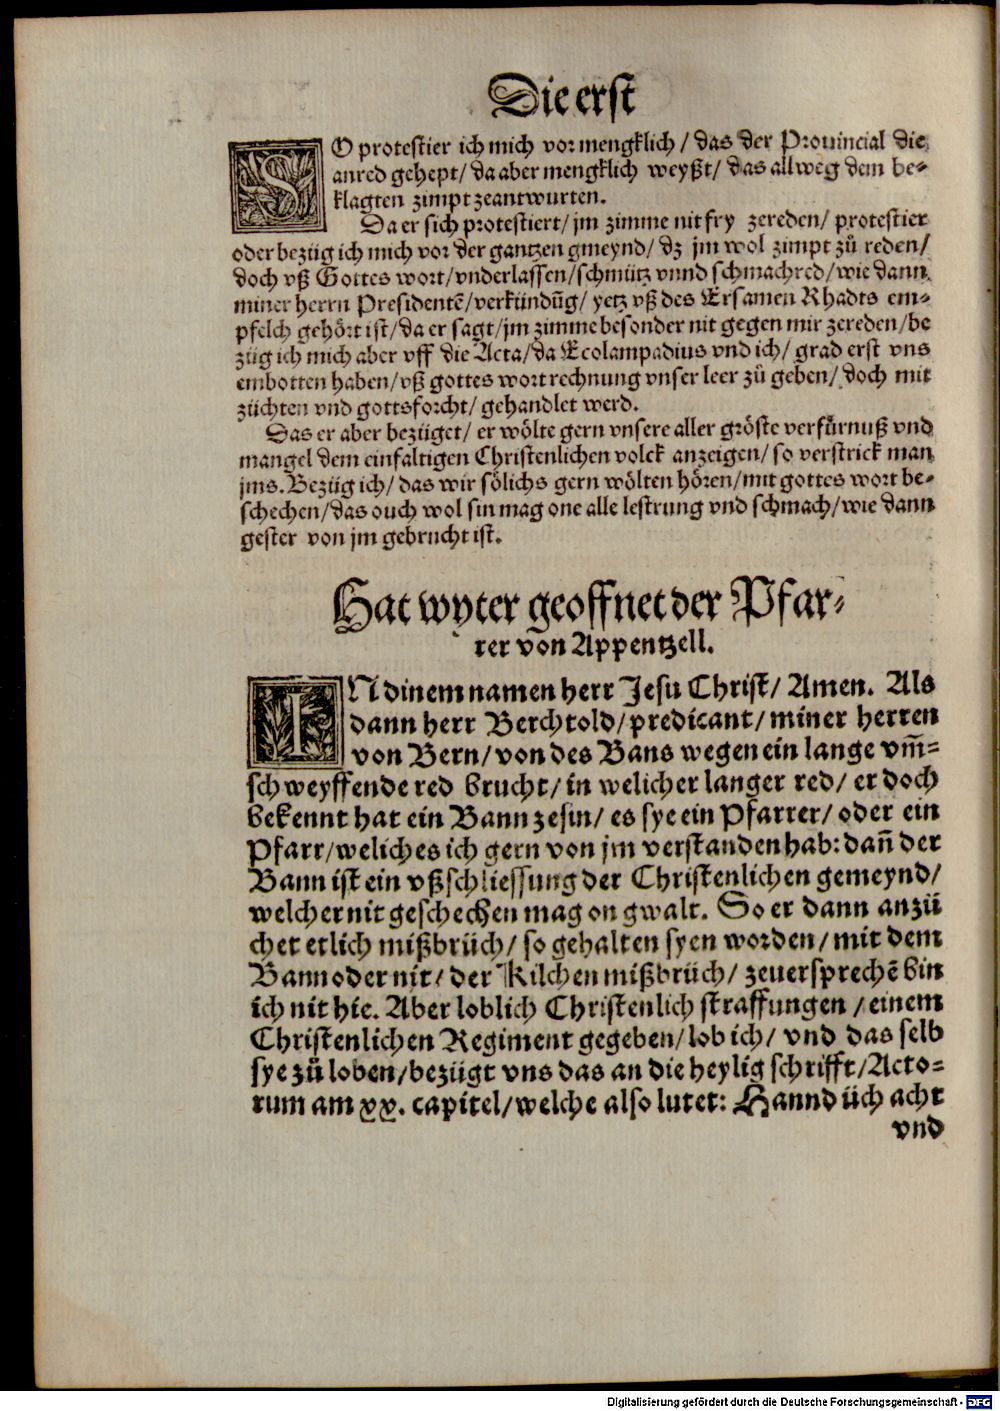 Die erst
SO protestier ich mich vor mengklich / das der Prouincial die
anred gehept / da aber mengklich weyßt / das allweg dem be-
klagten zimpt zeantwurten.
Da er sich protestiert / jm zimme nit fry zereden / protestier
oder bezüg ich mich vor der gantzen gmeynd / dz jm wol zimpt zů reden /
doch vß Gottes wort / vnderlassen / schmütz vnnd schmachred / wie dann
miner herrn Presidentē / verkündūg / yetz vß des Ersamen Rhadts em-
pfelch gehört ist / da er sagt / jm zimme besonder nit gegen mir zereden / be
züg ich mich aber vff die Acta / da Ecolampadius vnd ich / grad erst vns
embotten haben / vß gottes wort rechnung vnser leer zů geben / doch mit
züchten vnd gottsforcht / gehandlet werd.
Das er aber bezüget / er wölte gern vnsere aller gröste verfürnuß vnd
mangel dem einfaltigen Christenlichen volck anzeigen / so verstrick man
jms. Bezüg ich / das wir sölichs gern wölten hören / mit gottes wort be-
schechen / das ouch wol sin mag one alle lestrung vnd schmach / wie dann
gester von jm gebrucht ist.
Hat wyter geoffnet der Pfar-
rer von Appentzell.
IN dinem namen herr Jesu Christ / Amen. Als
dann herr Berchtold / predicant / miner herren
von Bern / von des Bans wegen ein lange vm̄-
schweyffende red brucht / in welicher langer red / er doch
bekennt hat ein Bann zesin / es sye ein Pfarrer / oder ein
Pfarr / weliches ich gern von jm verstanden hab: dañ der
Bann ist ein vßschliessung der Christenlichen gemeynd /
welcher nit geschechen mag on gwalt. So er dann anzü
chet etlich mißbrüch / so gehalten syen worden / mit dem
Bann oder nit / der Kilchen mißbrüch / zeuersprechē bin
ich nit hie. Aber loblich Christenlich straffungen / einem
Christenlichen Regiment gegeben / lob ich / vnd das selb
sye zů loben / bezügt vns das an die heylig schrifft / Acto-
rum am xx. capitel / welche also lutet: Hannd üch acht
vnd
Digitalisierung gefördert durch die Deutsche Forschungsgemeinschaft - DFG